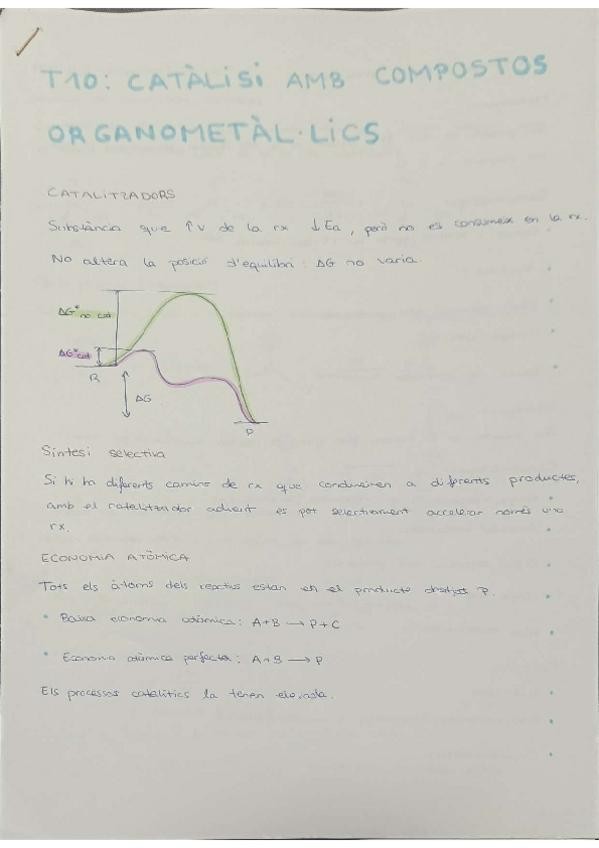 T10: CATÀLISI AMB COMPOSTOS
ORGANOMETÀL·LICS
CATALITZADORS
Substància que ↑V de la rx ↓Ea, però no es consumeix en la rx.
No altera la posició d'equilibri: ΔG no varia.
ΔG* no cat
ΔG* cat
R
ΔG
P
Síntesi selectiva
Si hi ha diferents camins de rx que condueixen a diferents productes,
amb el catalitzador adient es pot selectivament accelerar només una
rx.
ECONOMIA ATÒMICA
Tots els àtoms dels reactius estan en el producte P.
• Baixa economia atòmica: A+B → P+C
• Economia atòmica perfecta: A+B → P
Els processos catalítics la tenen elevada.